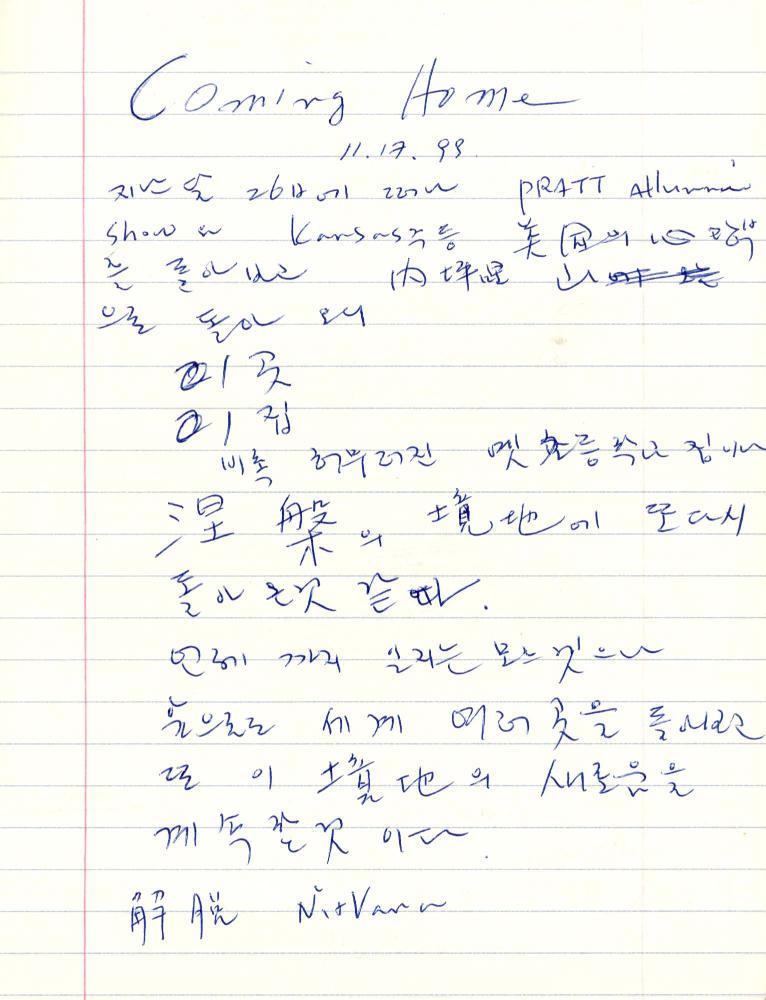 Coming Home
11.17.99.
지난 달 26日에 떠나 PRATT Allumni
Show와 Kansas주등 美国의 心
을 돌아보고 內坪里
으로 돌아 오니
이곳
이 집
비록 허무러진 옛 초등학교 집이나
涅槃의 境地에 또다시
돌아 온것 같다.
언제 까지 일지는 모르것으나
앞으로도 세계 여러곳을 돌아보고
또 이 境地의 새로움을
계속 할것 이다.
解脫 Nirvana